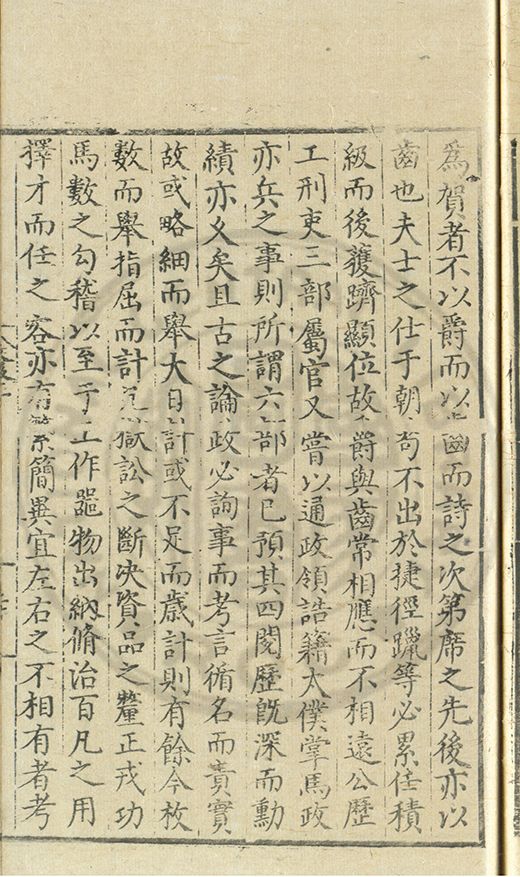 為賀者不以爵而以齒而詩之次第席之先後亦以
齒也夫士之仕于朝苟不出於捷徑躐等必累任積
級而後獲躋顯位故爵與齒常相應而不相遠公歷
工刑吏三部屬官又嘗以通政領誥籍太僕掌馬政
亦兵之事則所謂六部者已預其四閱歷旣深而勳
績亦久矣且古之論政必詢事而考言循名而責實
故或略細而舉大日計或不足而歲計則有餘今枚
數而舉指屈而計獄訟之斷决資品之釐正戎功
馬數之勾稽以至于工作噐物出納脩治百凡之用
擇才而任之容亦有繁簡異宜左右之不相有者考